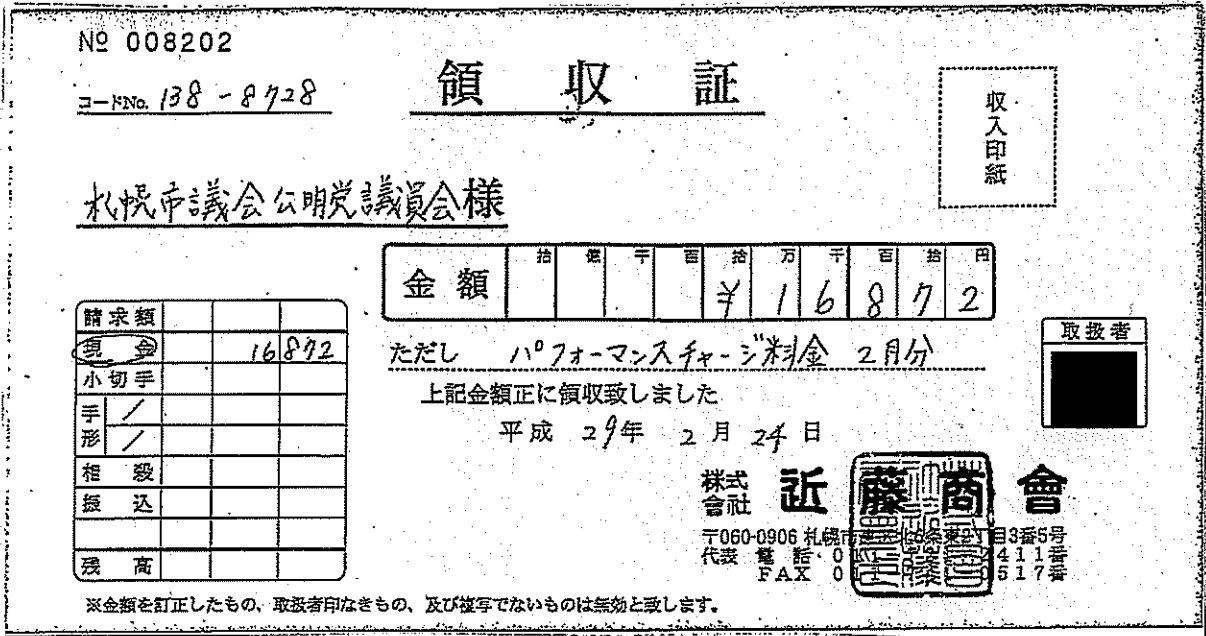 № 008202
コードNo. 138-8728
領収証
収入印紙
札幌市議会公明党議員会様
金額 拾 億 千 百 拾 万 千 百 拾 円
¥16872
請求額
現金 16872
小切手
手形
相殺
振込
残高
取扱者
ただし パフォーマンスチャージ料金 2月分
上記金額正に領収致しました
平成 29年 2月 24日
株式會社 近藤商會
〒060-0906 札幌市 北6条東2丁目3番5号
代表 電話 0 2411番
FAX 0 0517番
※金額を訂正したもの、取扱者印なきもの、及び複写でないものは無効と致します。